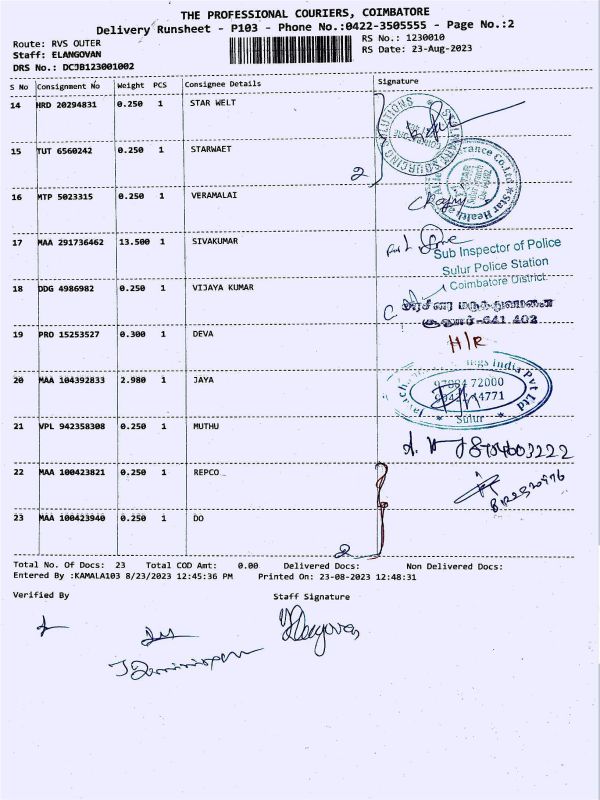 THE PROFESSIONAL COURIERS, COIMBATORE
Delivery Runsheet - P103 - Phone No.:0422-3505555 - Page No.:2
Route: RVS OUTER
RS No.: 1230010
Staff: ELANGOVAN
RS Date: 23-Aug-2023
DRS No.: DCJB123001002
S No Consignment No Weight PCS Consignee Details Signature
14 HRD 20294831 0.250 1 STAR WELT
15 TUT 6560242 0.250 1 STARWAET
2
16 MTP 5023315 0.250 1 VERAMALAI
17 MAA 291736462 13.500 1 SIVAKUMAR
Sub Inspector of Police
Sulur Police Station
Coimbatore District
18 DDG 4986982 0.250 1 VIJAYA KUMAR
அரசினர் மருத்துவமனை
சூலூர்-641 402
19 PRO 15253527 0.300 1 DEVA
H/R
20 MAA 104392833 2.980 1 JAYA
72000
Sulur
India Pvt Ltd
21 VPL 942358308 0.250 1 MUTHU
22 MAA 100423821 0.250 1 REPCO
23 MAA 100423940 0.250 1 DO
2
Total No. Of Docs: 23 Total COD Amt: 0.00 Delivered Docs: Non Delivered Docs:
Entered By :KAMALA103 8/23/2023 12:45:36 PM Printed On: 23-08-2023 12:48:31
Verified By Staff Signature